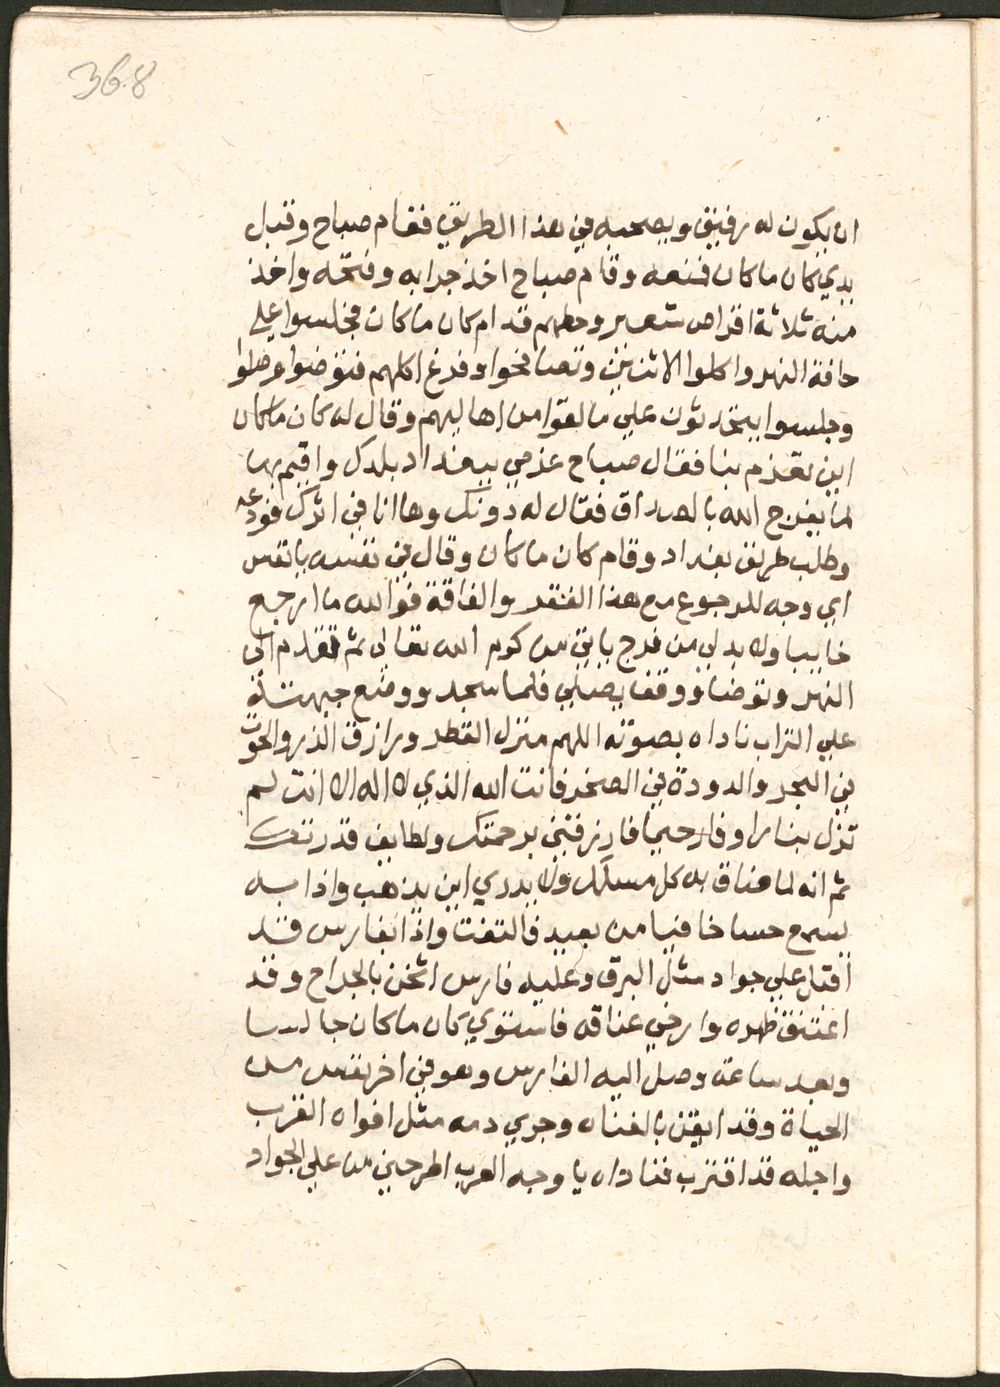 368
ان يكون له رفيق ويصحبه في هذا الطريق فقام صباح وقبل
يدي كان ما كان فمنعه وقام صباح اخذ جرابه وفتحه واخذ
منه ثلاثة اقراص شعير وحطهم قدام كان ما كان فجلسوا علي
حافة النهر واكلوا الاثنين وتعنا نحوا وفرغ اكلهم فتوضوا وصلوا
وجلسوا يتحدثون علي ما لقوا من اهاليهم وقال له كان ما كان
اين تعزم بنا فقال صباح عزمي ببغداد بلدك واقيم بها
لما يفرج الله بالصداق فقال له دونك وها انا في اثرك فودعه
وطلب طريق بغداد وقام كان ما كان وقال في نفسه يا نفس
اي وجه للرجوع مع هذا الفقر والفاقة فوالله ما ارجع
خايبا ولا بد لي من فرج ياتي من كرم الله تعالي ثم تقدم الي
النهر وتوضا ووقف يصلي فلما سجد ووضع جبهته
علي التراب ناداه بصوته اللهم منزل القطر ورازق الذر والحوت
في البحر والدودة في الصخر فانت الله الذي لا اله الا انت لم
تزل بنا راوفا رحيما فارزقني برحمتك ولطايف قدرتك
ثم انه لما ضاق به كل مسلك ولا يدري اين يذهب واذا به
يسمع حسا خافيا من بعيد فالتفت واذا بفارس قد
اقبل علي جواد مثل البرق وعليه فارس اثخن بالجراح وقد
اعتنق ظهره وارخي عناقه فاستوي كان ما كان جالسا
وبعد ساعة وصل اليه الفارس وهو في اخر نفس من
الحياة وقد ايقن بالفناه وجري دمه مثل افواه القرب
واجله قد اقترب فناداه يا وجه العرب اطرحني من علي الجواد